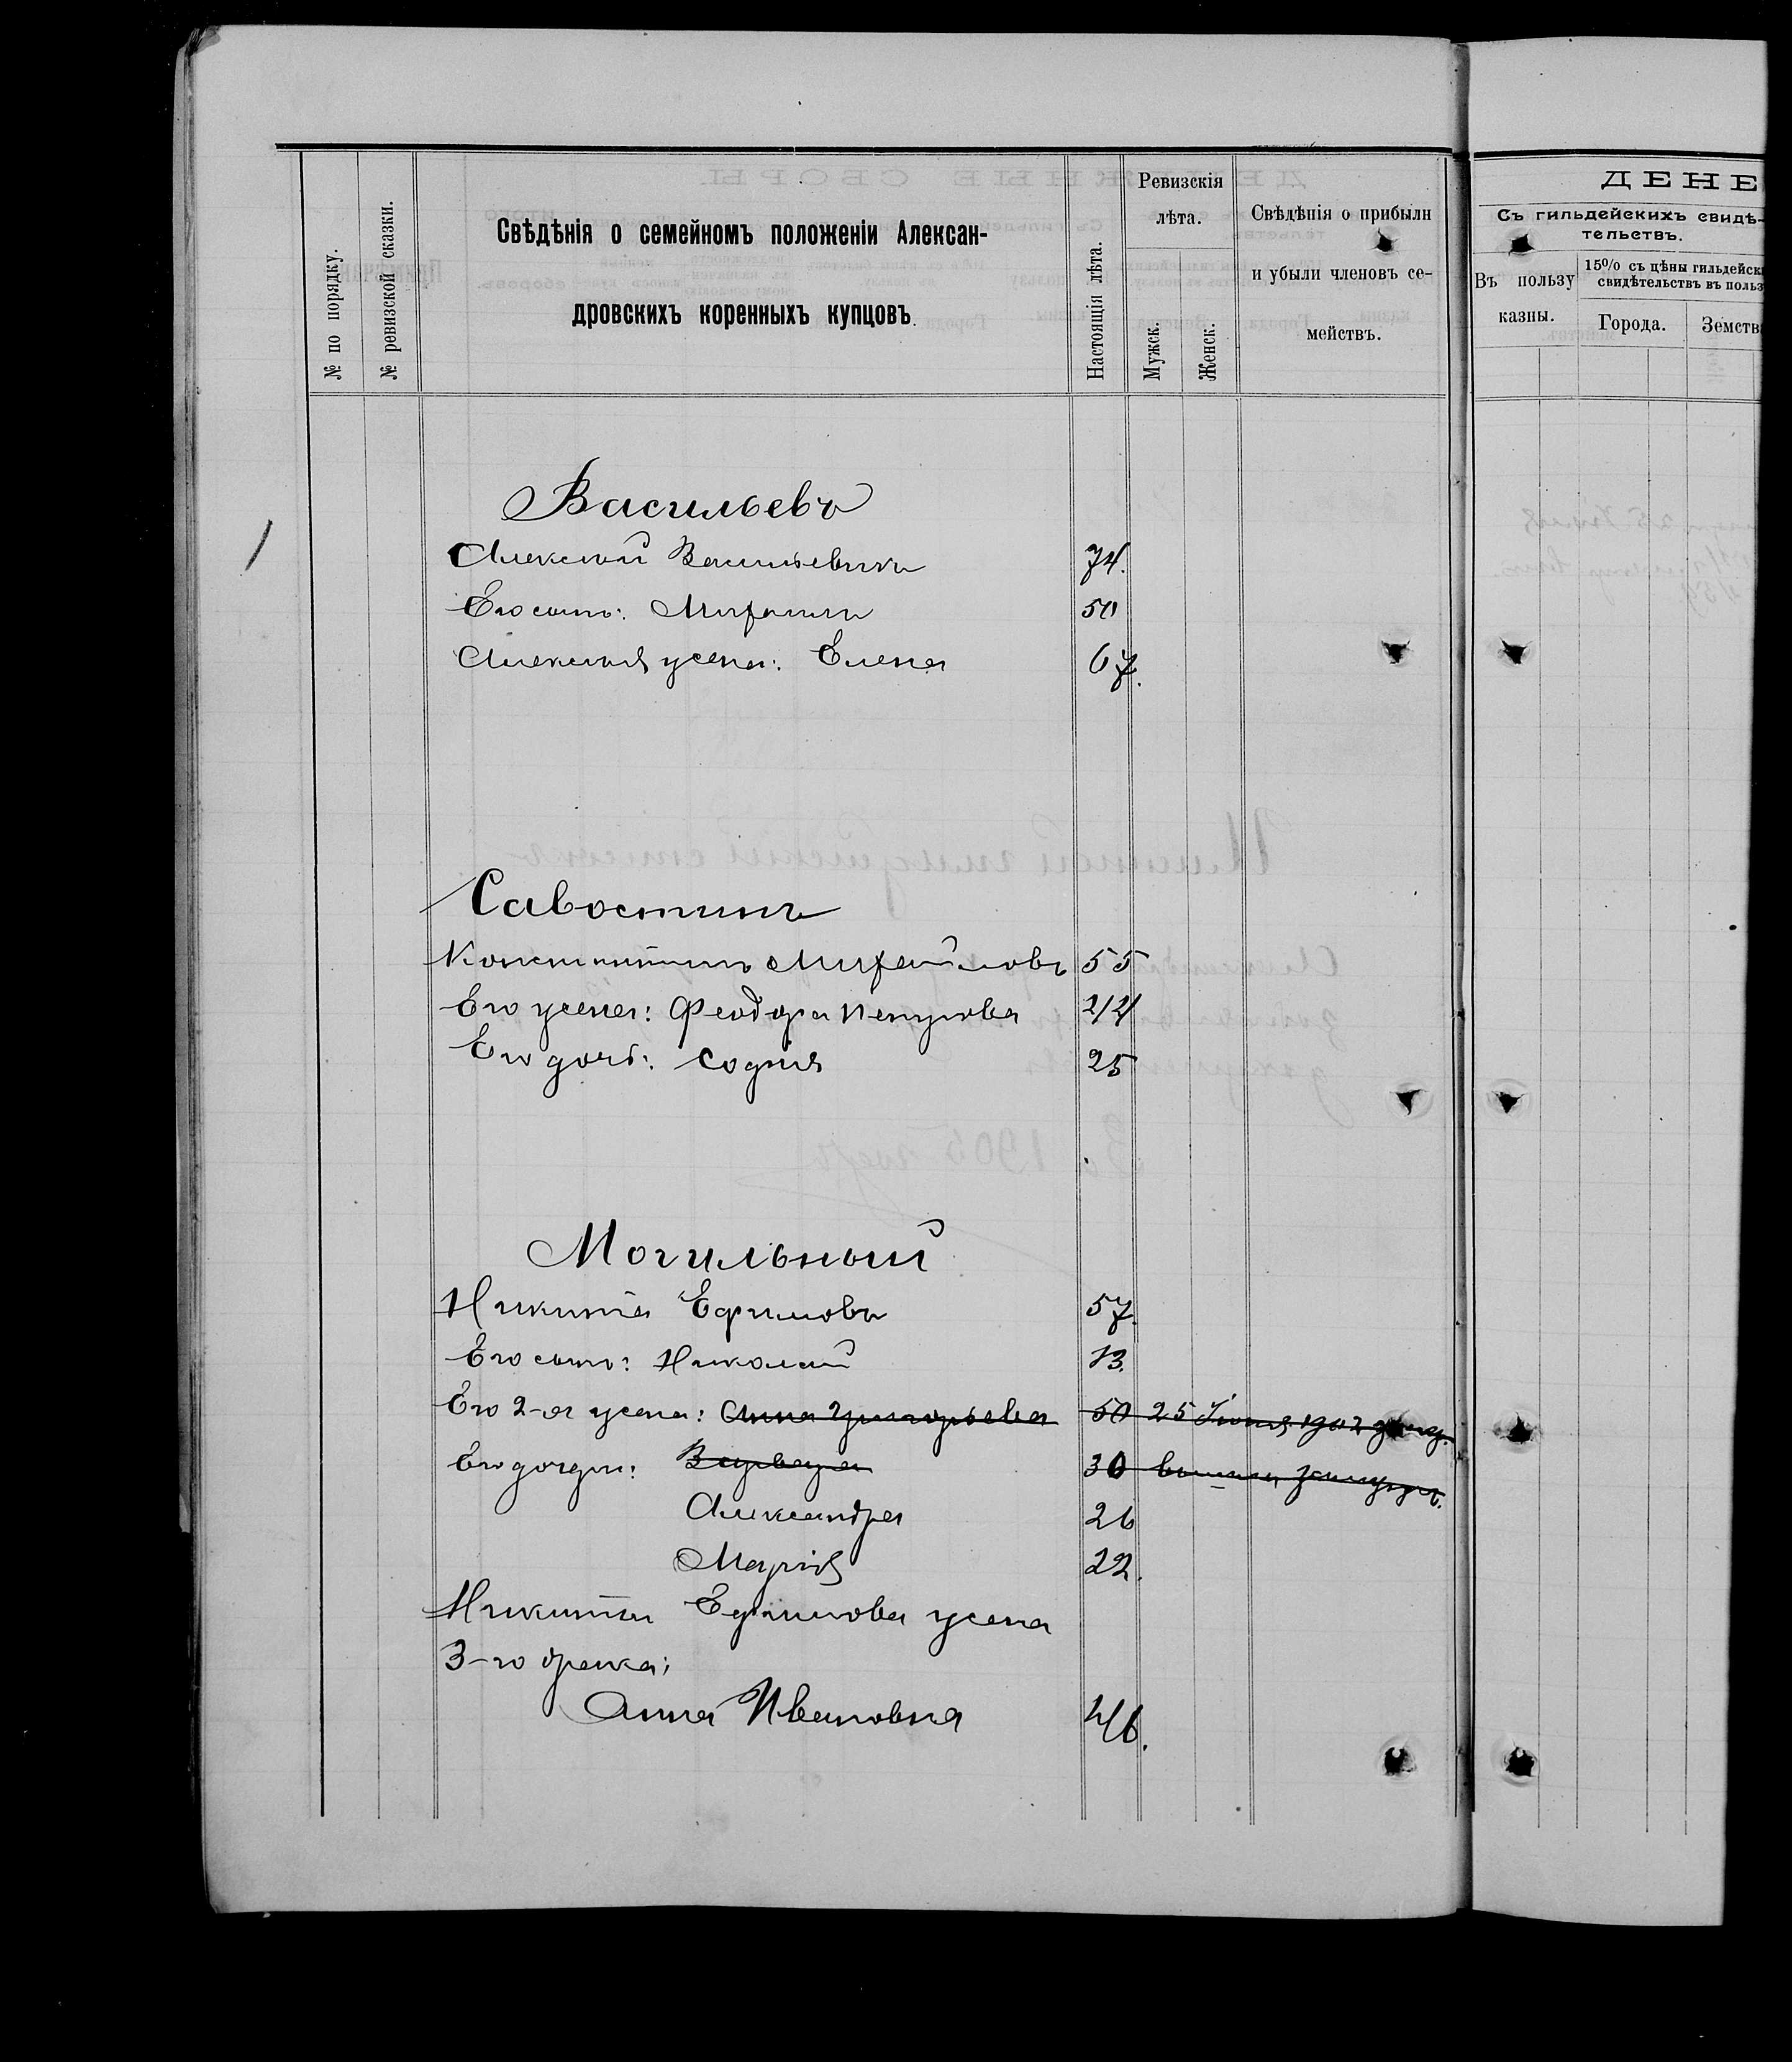 № по порядку.
№ ревизской сказки.
Свѣдѣнія о семейномъ положеніи Алексан-
дровскихъ коренныхъ купцовъ.
Настоящія лѣта.
Ревизскія
лѣта.
Мужск.
Женск.
Свѣдѣнія о прибыли
и убыли членовъ се-
мействъ.
ДЕНЕ
Съ гильдейскихъ свидѣ-
тельствъ.
Въ пользу
казны.
15% съ цѣны гильдейск
свидѣтельствъ въ польз
Города.
Земств
Васильевъ
Алексѣй Васильевичъ 74.
Его сынъ: Михаилъ 50
Алексѣя жена: Елена 67.
Савостинъ
Константинъ Михайловъ 55
Его жена: Феодора 44
Его дочь: Софія 25
Могильный
Никита Ефимовъ 57.
Его сынъ: Николай 13.
Его 2-ая жена: Анна Григорьева 50 25 Іюня 1902
Его дочери: Варвара 30 вышла замужъ.
Александра 26
Марія 22.
Никиты Ефимова жена
3-го брака:
Анна Ивановна 46.